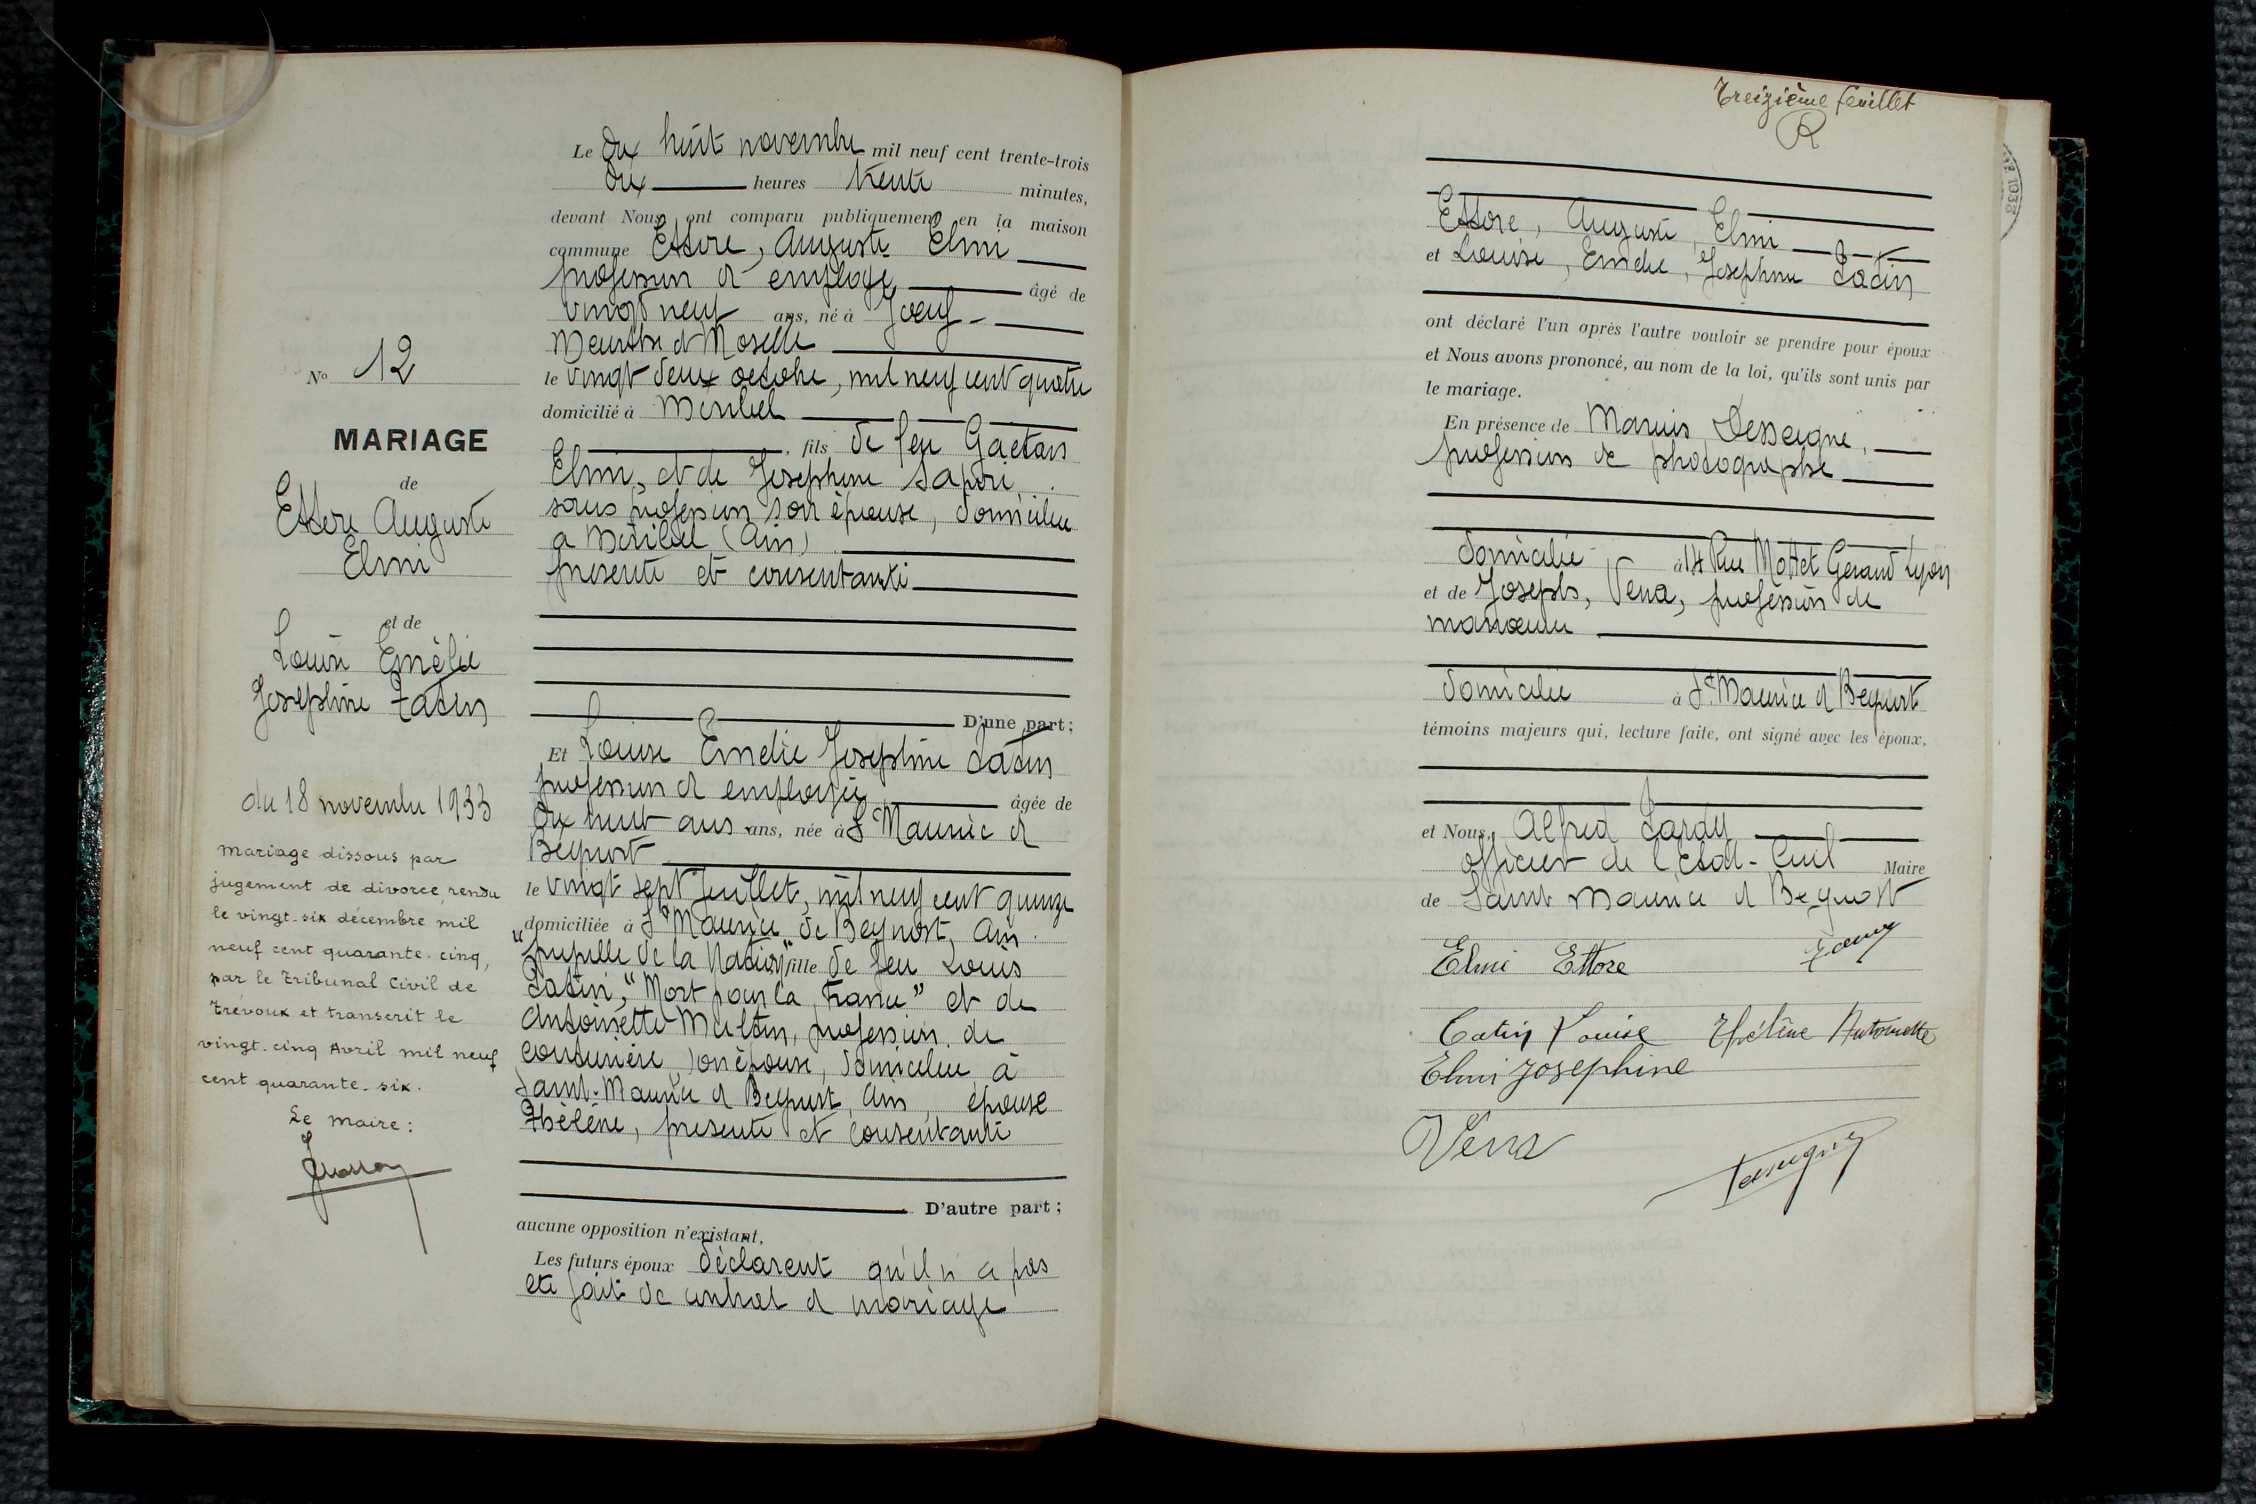 Le dix huit novembre mil neuf cent trente-trois
dix heures trente minutes,
devant Nous, ont comparu publiquement en la maison
commune Ettore, Auguste Elmi
profession d'employé âgé de
vingt neuf ans, né à Joeuf
Meurthe et Moselle
le vingt deux octobre, mil neuf cent quatre
domicilié à Miribel
, fils de feu Gaetan
Elmi, et de Josephine Sapori
sans profession son épouse, domiciliée
a Miribel (Ain)
presente et consentante
D'une part;
Et Louise Emelie Josephine Catin
profession d'employée âgée de
dix huit ans ans, née à St Maurice d
Beynost
le vingt sept Juillet, mil neuf cent quinze
domiciliée à St Maurice de Beynost, Ain
"pupille de la Nation" fille de feu Louis
Catin, "Mort pour la France" et de
Antoinette profession de
couturière, son épouse, domiciliée à
Saint-Maurice d Beynost, Ain, épouse
Thélène, presente et consentante
D'autre part;
aucune opposition n'existant,
Les futurs époux déclarent qu'il n'a pas
été fait de contrat d mariage
No 12
MARIAGE
de
Ettore Auguste
Elmi
et de
Louise Emèlie
Josephine Catin
du 18 novembre 1933
Mariage dissous par
jugement de divorce, rendu
le vingt-six décembre mil
neuf cent quarante-cinq,
par le Tribunal Civil de
Trévoux et transcrit le
vingt-cinq Avril mil neuf
cent quarante-six.
Le Maire:
Treizième feuillet
R
Ettore, Auguste, Elmi
et Louise, Emelie, Josephine Catin
ont déclaré l'un après l'autre vouloir se prendre pour époux
et Nous avons prononcé, au nom de la loi, qu'ils sont unis par
le mariage.
En présence de Marius Desseigne,
profession de photographe
domicilié à 14 Rue Mottet Gérand Lyon
et de Joseph, Vena, profession de
manoeuvre
domicilié à St Maurice d Beynost
témoins majeurs qui, lecture faite, ont signé avec les époux,
et Nous, Alfred Lardy
officier de l'état-Civil Maire
de Saint Maurice d Beynost
Elmi Ettore
Catin Louise Thélène Antoinette
Elmi Josephine
Vena